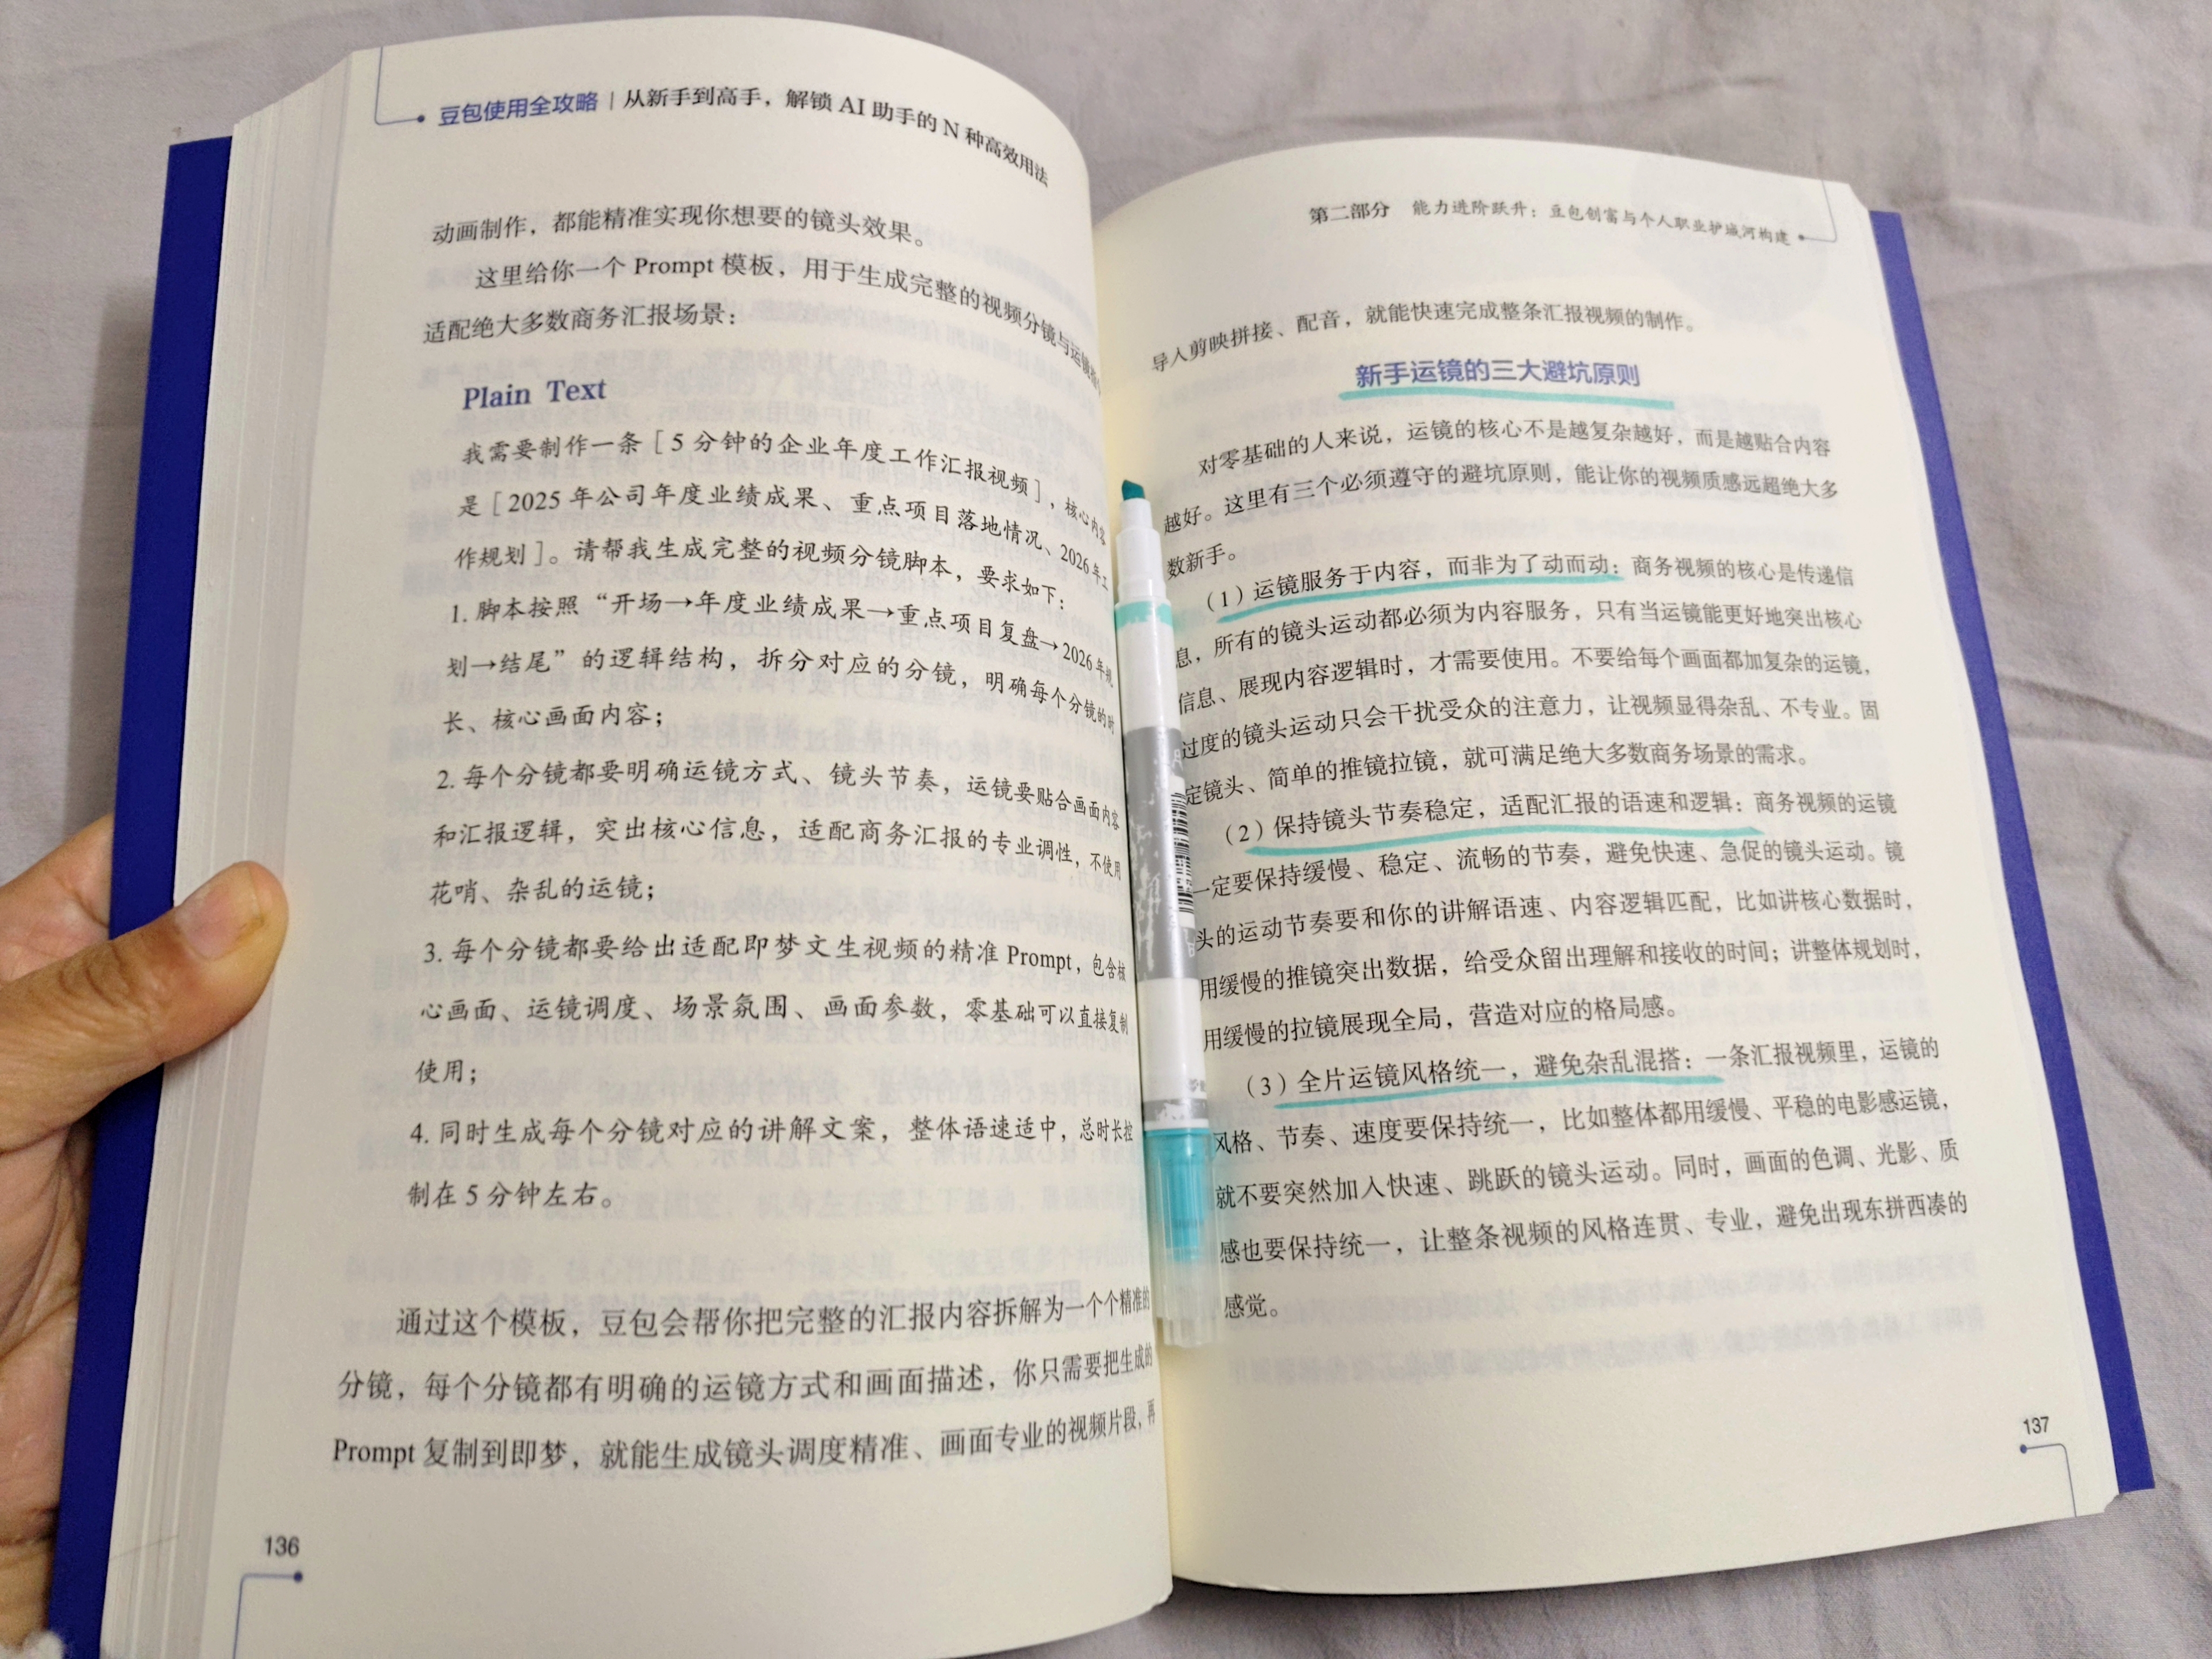 豆包使用全攻略 | 从新手到高手，解锁 AI 助手的 N 种高效用法
动画制作，都能精准实现你想要的镜头效果。
这里给你一个 Prompt 模板，用于生成完整的视频分镜与运镜
适配绝大多数商务汇报场景：
Plain Text
我需要制作一条［5 分钟的企业年度工作汇报视频］，核心内容
是［2025 年公司年度业绩成果、重点项目落地情况、2026 年工
作规划］。请帮我生成完整的视频分镜脚本，要求如下：
1. 脚本按照“开场→年度业绩成果→重点项目复盘→2026 年规
划→结尾”的逻辑结构，拆分对应的分镜，明确每个分镜的时
长、核心画面内容；
2. 每个分镜都要明确运镜方式、镜头节奏，运镜要贴合画面内容
和汇报逻辑，突出核心信息，适配商务汇报的专业调性，不使用
花哨、杂乱的运镜；
3. 每个分镜都要给出适配即梦文生视频的精准 Prompt，包含核
心画面、运镜调度、场景氛围、画面参数，零基础可以直接复制
使用；
4. 同时生成每个分镜对应的讲解文案，整体语速适中，总时长控
制在 5 分钟左右。
通过这个模板，豆包会帮你把完整的汇报内容拆解为一个个精准的
分镜，每个分镜都有明确的运镜方式和画面描述，你只需要把生成的
Prompt 复制到即梦，就能生成镜头调度精准、画面专业的视频片段，再
136
第二部分 能力进阶跃升：豆包创富与个人职业护城河构建
导入剪映拼接、配音，就能快速完成整条汇报视频的制作。
新手运镜的三大避坑原则
对零基础的人来说，运镜的核心不是越复杂越好，而是越贴合内容
越好。这里有三个必须遵守的避坑原则，能让你的视频质感远超绝大多
数新手。
（1）运镜服务于内容，而非为了动而动：商务视频的核心是传递信
息，所有的镜头运动都必须为内容服务，只有当运镜能更好地突出核心
信息、展现内容逻辑时，才需要使用。不要给每个画面都加复杂的运镜，
过度的镜头运动只会干扰受众的注意力，让视频显得杂乱、不专业。固
定镜头、简单的推镜拉镜，就可满足绝大多数商务场景的需求。
（2）保持镜头节奏稳定，适配汇报的语速和逻辑：商务视频的运镜
一定要保持缓慢、稳定、流畅的节奏，避免快速、急促的镜头运动。镜
头的运动节奏要和你的讲解语速、内容逻辑匹配，比如讲核心数据时，
用缓慢的推镜突出数据，给受众留出理解和接收的时间；讲整体规划时，
用缓慢的拉镜展现全局，营造对应的格局感。
（3）全片运镜风格统一，避免杂乱混搭：一条汇报视频里，运镜的
风格、节奏、速度要保持统一，比如整体都用缓慢、平稳的电影感运镜，
就不要突然加入快速、跳跃的镜头运动。同时，画面的色调、光影、质
感也要保持统一，让整条视频的风格连贯、专业，避免出现东拼西凑的
感觉。
137